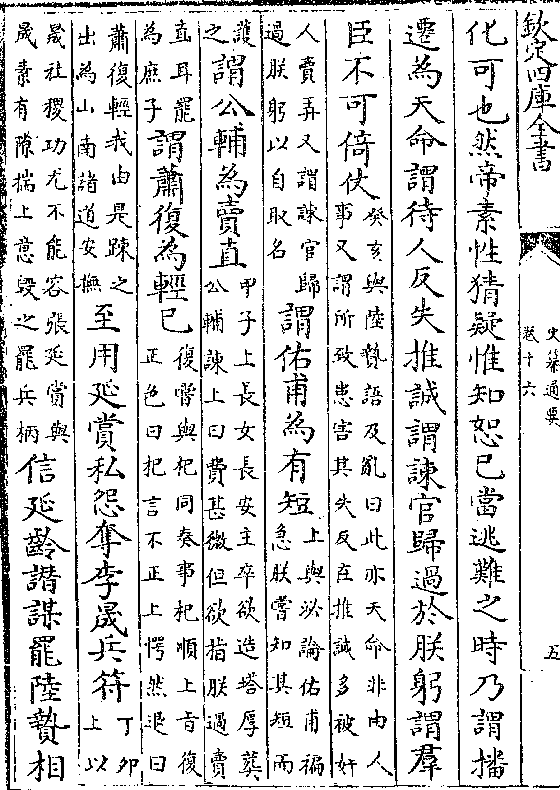 欽定四庫全書
史纂通要
卷十六
五
化可也然帝素性猜疑惟知恕已當逃難之時乃謂播
遷為天命謂待人反失推誠謂諫官歸過於朕躬謂羣
臣不可倚仗
癸亥與陸贄語及亂曰此亦天命非由人
事又謂所致患害其失反在推誠多被奸
人賣弄又謂諫官歸
過朕躬以自取名
謂佑甫為有短
上與泌論佑甫褊
急朕嘗知其短而
護
之
謂公輔為賣直
甲子上長女長安主卒欲造塔厚葬
公輔諫上曰費甚微但欲指朕過賣
直耳罷
為庶子
謂蕭復為輕已
復嘗與杞同奏事杞順上旨復
正色曰杞言不正上愕然退曰
蕭復輕我由是踈之
出為山南諸道安撫
至用延賞私怨奪李晟兵符
丁卯
上以
晟社稷功尤不能容張延賞與
晟素有隙揣上意毀之罷兵柄
信延齡譖謀罷陸贄相